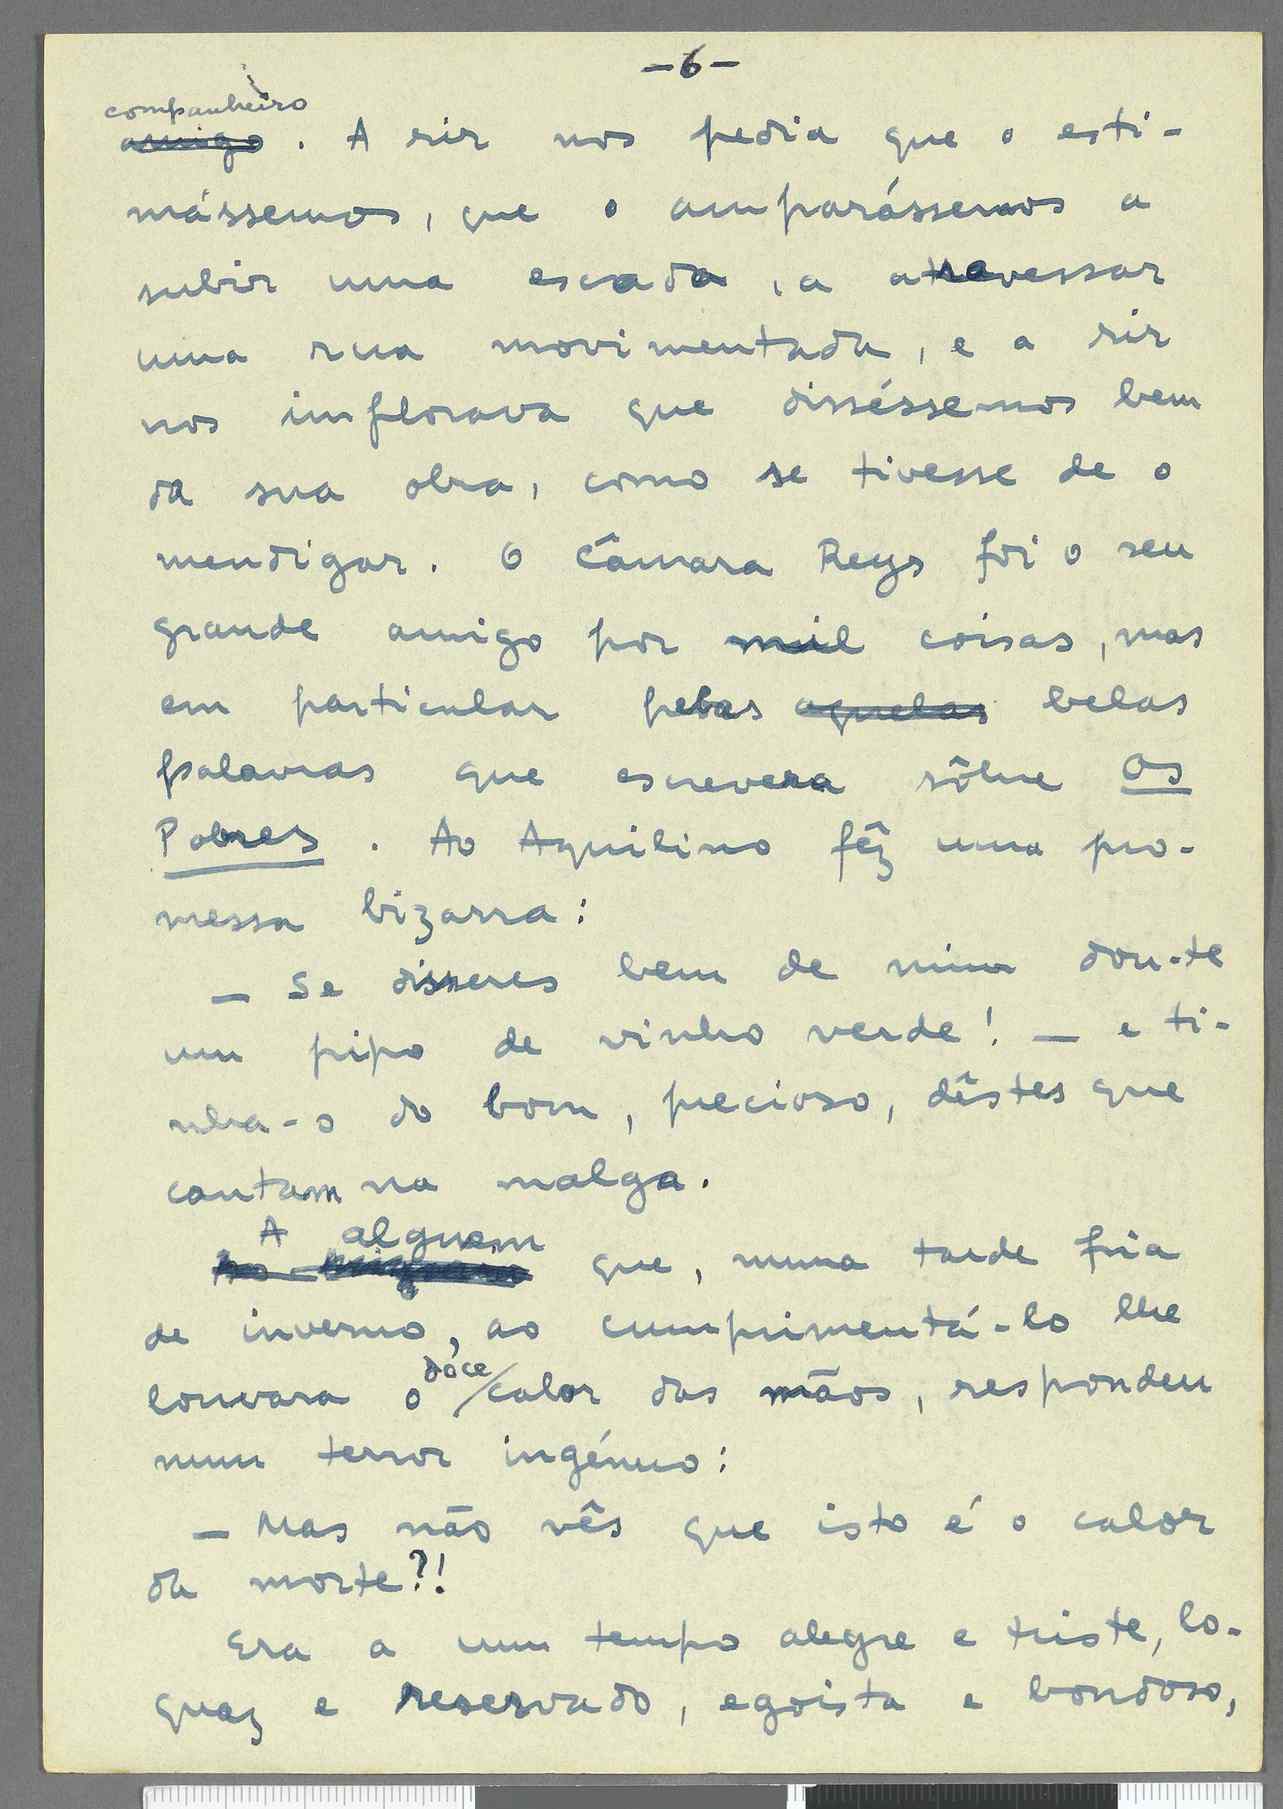 -6-
companheiro
amigo. A rir nos pedia que o esti-
mássemos, que o amparássemos a
subir uma escada, a atravessar
uma rua movimentada, e a rir
nos implorava que disséssemos bem
da sua obra, como se tivesse de o
mendigar. O Câmara Reys foi o seu
grande amigo por mil coisas, mas
em particular pelas aquelas belas
palavras que escrevera sôbre Os
Pobres. Ao Aquilino fêz uma pro-
messa bizarra:
- Se disseres bem de mim dou-te
um pipo de vinho verde! - e ti-
nha-o do bom, precioso, dêstes que
cantam na malga.
A alguem
que, numa tarde fria
de inverno, ao cumprimentá-lo lhe
dôce
louvara o calor das mãos, respondeu
num terror ingénuo:
- Mas não vês que isto é o calor
da morte?!
Era a um tempo alegre e triste, lo-
quaz e reservado, egoista e bondoso,